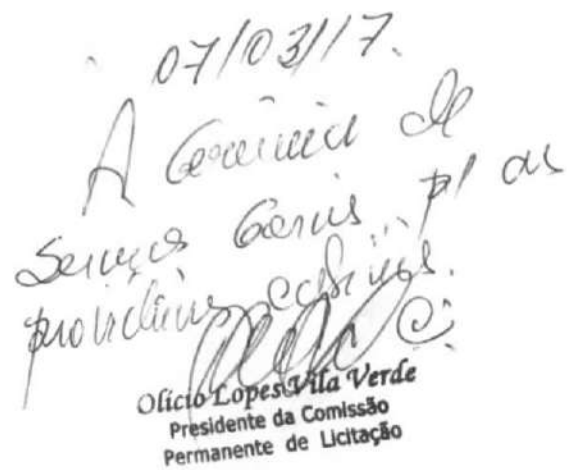 07/03/17.
A Gerência de
Serviços Gerais p/ as
providências cabíveis.
Olicio Lopes Vila Verde
Presidente da Comissão
Permanente de Licitação